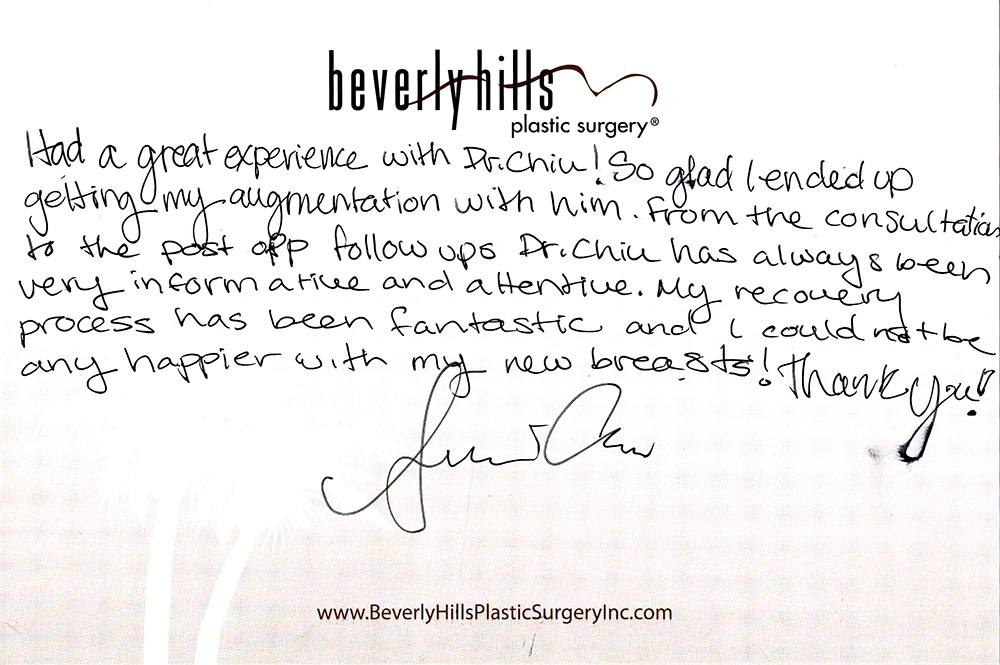 beverly hills
plastic surgery®
Had a great experience with Dr. Chiu! So glad I ended up
getting my augmentation with him. From the consultation
to the post opp follow ups Dr. Chiu has always been
very informative and attentive. My recovery
process has been fantastic and I could not be
any happier with my new breasts! Thank you!
www.BeverlyHillsPlasticSurgeryInc.com